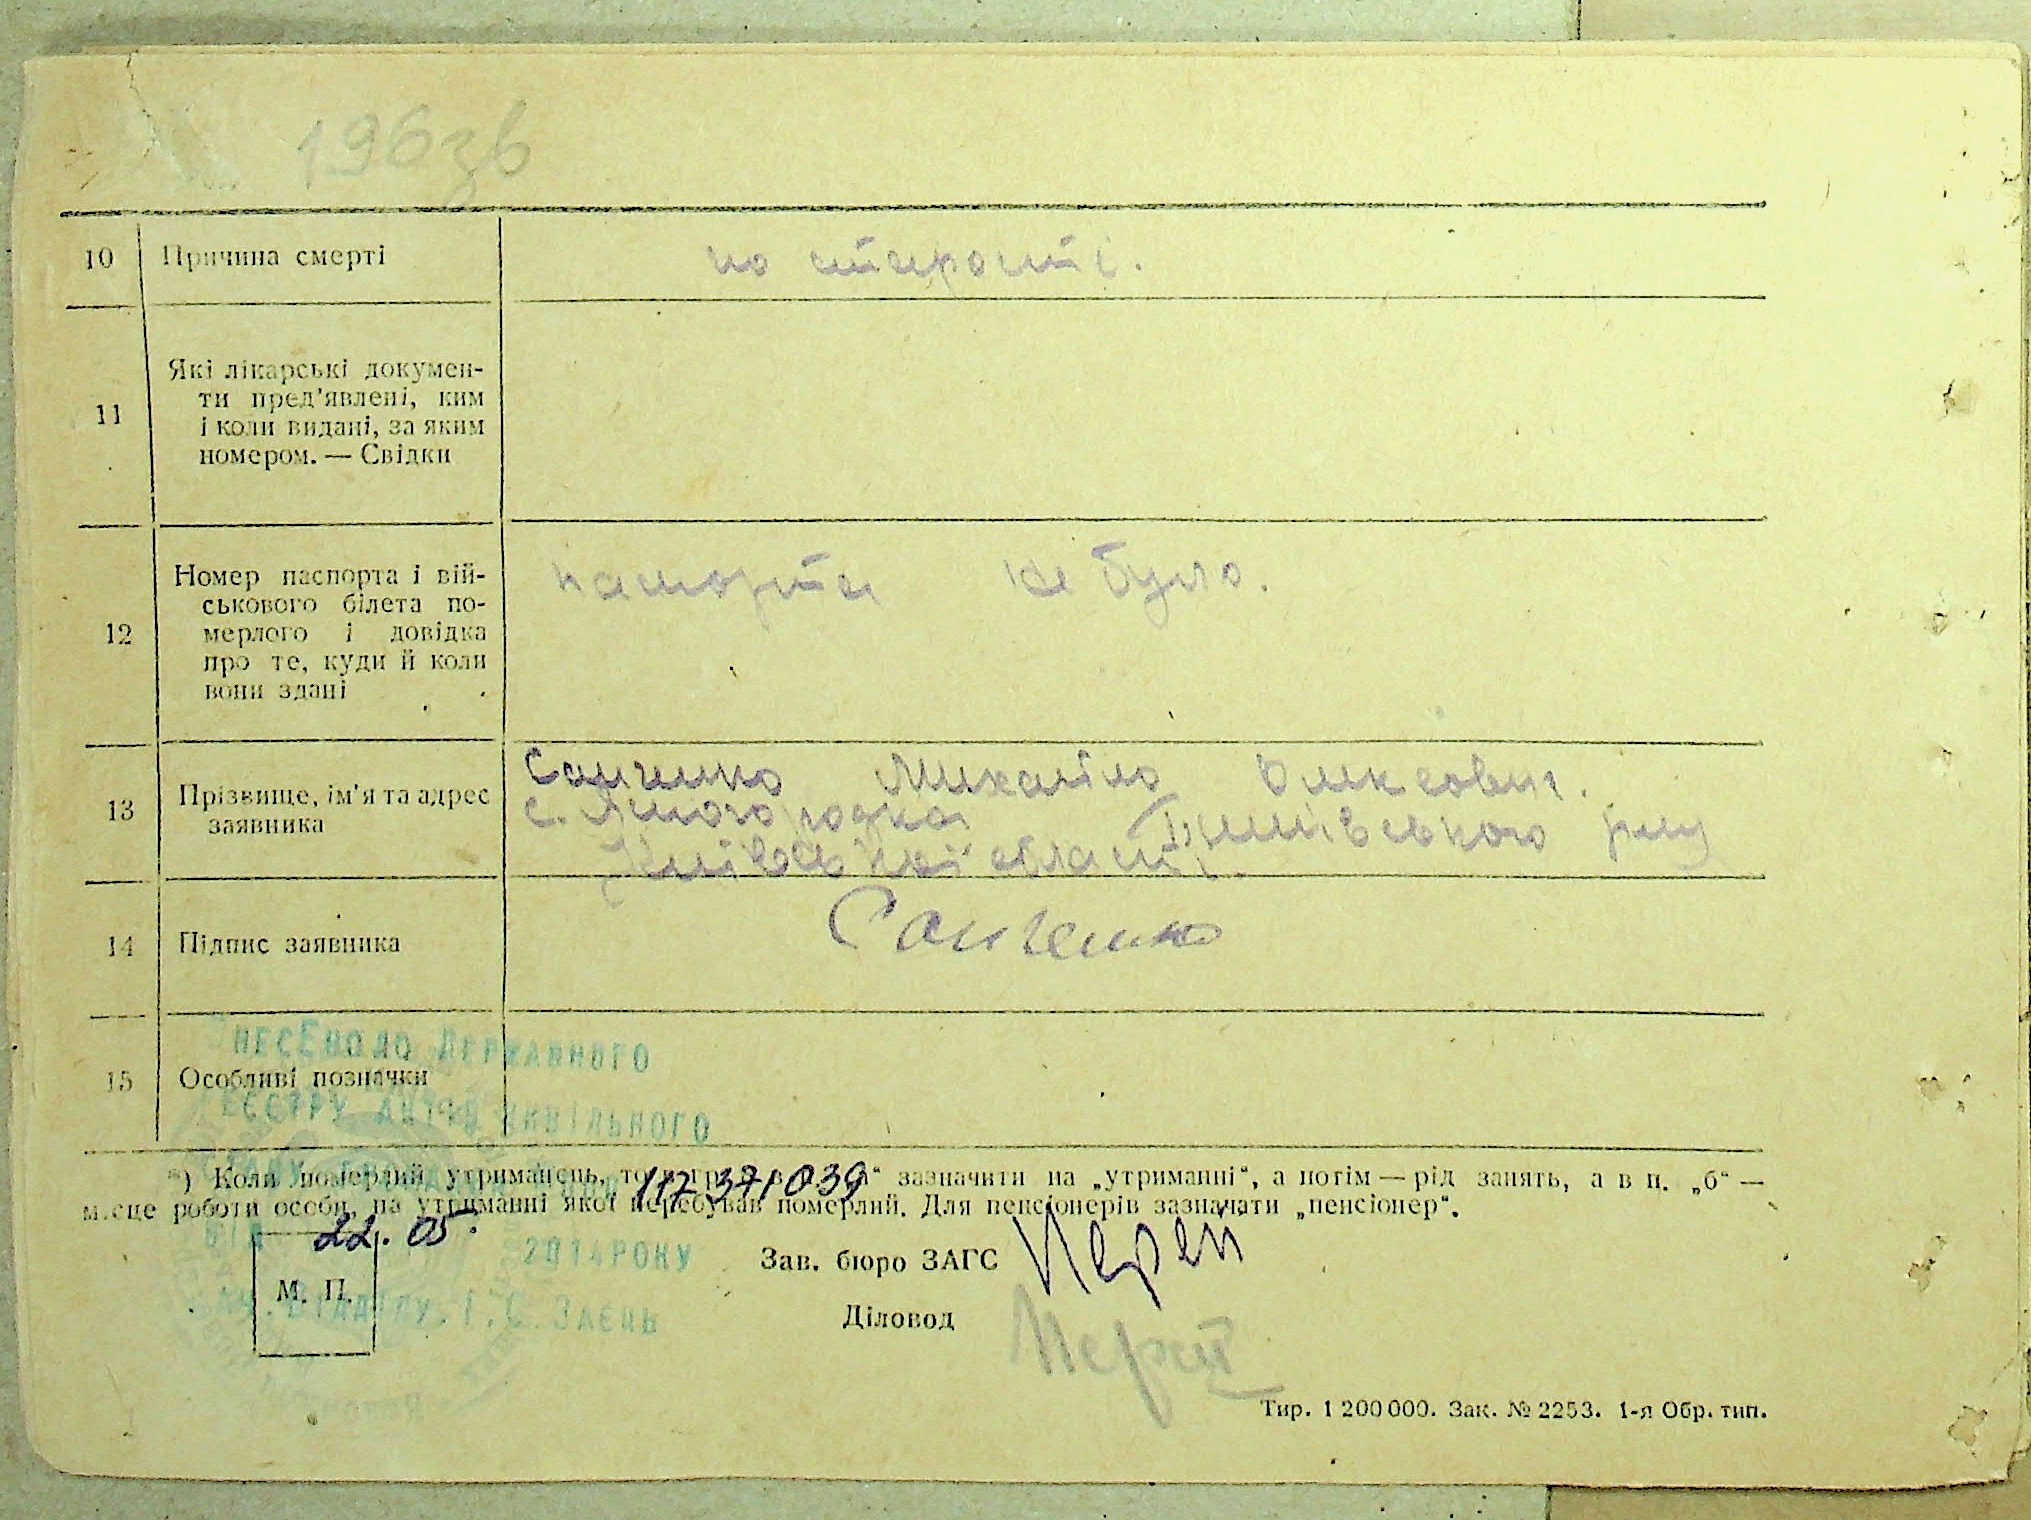 196зв
10 Причина смерті по старості.
11 Які лікарські докумен-
ти пред'явлені, ким
і коли видані, за яким
номером. — Свідки
12 Номер паспорта і вій-
ськового білета по-
мерлого і довідка
про те, куди й коли
вони здані
паспорта не було.
13 Прізвище, ім'я та адрес
заявника
Санченко Михайло Олексеович.
с. Ясногородка
району
Київської області.
14 Підпис заявника Санченко
15 Особливі позначки
Внесено до Державного
реєстру актів цивільного
*) Коли померлий утриманець, то в зазначити на „утриманні“, а потім — рід занять, а в п. „б“ —
місце роботи особи, на утриманні якої перебував померлий. Для пенсіонерів зазначати „пенсіонер“.
117371039
22.05.
2014 року
М. П.
Нач. відділу. І.С. Заєць
Зав. бюро ЗАГС
Діловод
Тир. 1 200 000. Зак. № 2253. 1-я Обр. тип.